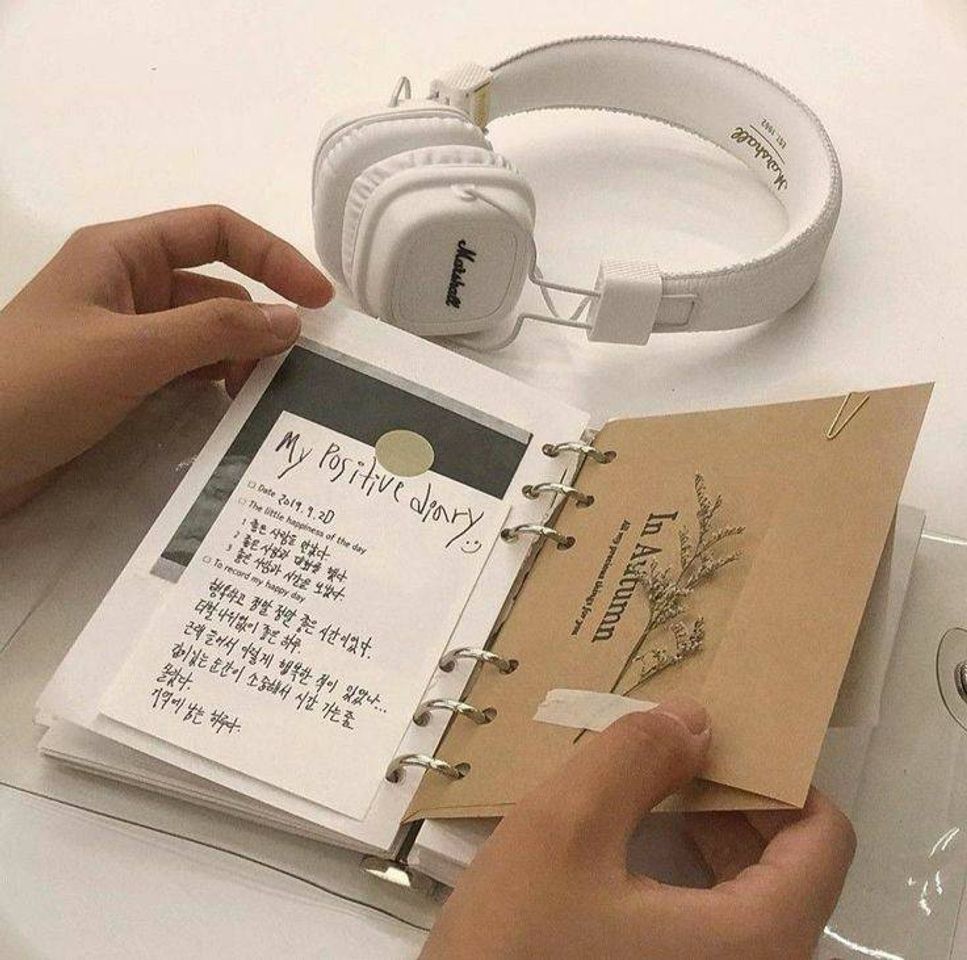 Marshall
EST. 1962
Marshall
My Positive diary
Date 2019. 9. 20
The little happiness of the day
1 좋은 사람을 만났다.
2 좋은 사람과 대화를 했다
3 좋은 사람과 시간을 보냈다.
To record my happy day
행복하고 정말 정말 좋은 시간이었다.
더할나위없이 좋은 하루
근래 들어서 이렇게 행복한 적이 있었나...
같이있는 순간이 소중해서 시간 가는줄
몰랐다.
기억에 남는 하루다.
In Autumn
All the precious things for you